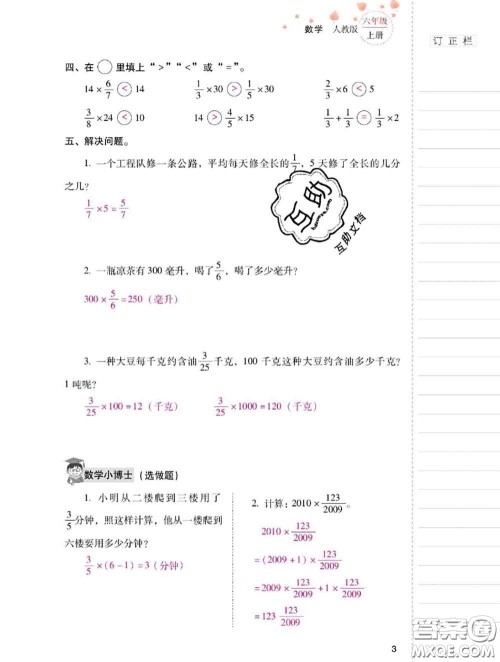 数学 人教版 六年级 上册
订正栏
四、在○里填上“>”“<”或“=”。
14×6/7 < 14 1/3×30 > 1/5×30 1/2×5/7 < 5/7
3/8×24 < 10 15 > 4/5×15 1/3+1/3 = 1/3×2
五、解决问题。
1. 一个工程队修一条公路，平均每天修全长的1/7，5天修了全长的几分
之几？
1/7×5=5/7
互助
互助文档
2. 一瓶凉茶有300毫升，喝了5/6，喝了多少毫升？
300×5/6=250（毫升）
3. 一种大豆每千克约含油3/25千克，100千克这种大豆约含油多少千克？
1吨呢？
3/25×100=12（千克） 3/25×1000=120（千克）
数学小博士（选做题）
1. 小明从二楼爬到三楼用了
3/5分钟，照这样计算，他从一楼爬到
六楼要用多少分钟？
3/5×(6-1)=3（分钟）
2. 计算：2010×123/2009。
2010×123/2009
=（2009+1）×123/2009
=2009×123/2009+1×123/2009
=123 123/2009
3
答案圈
MXQE.COM